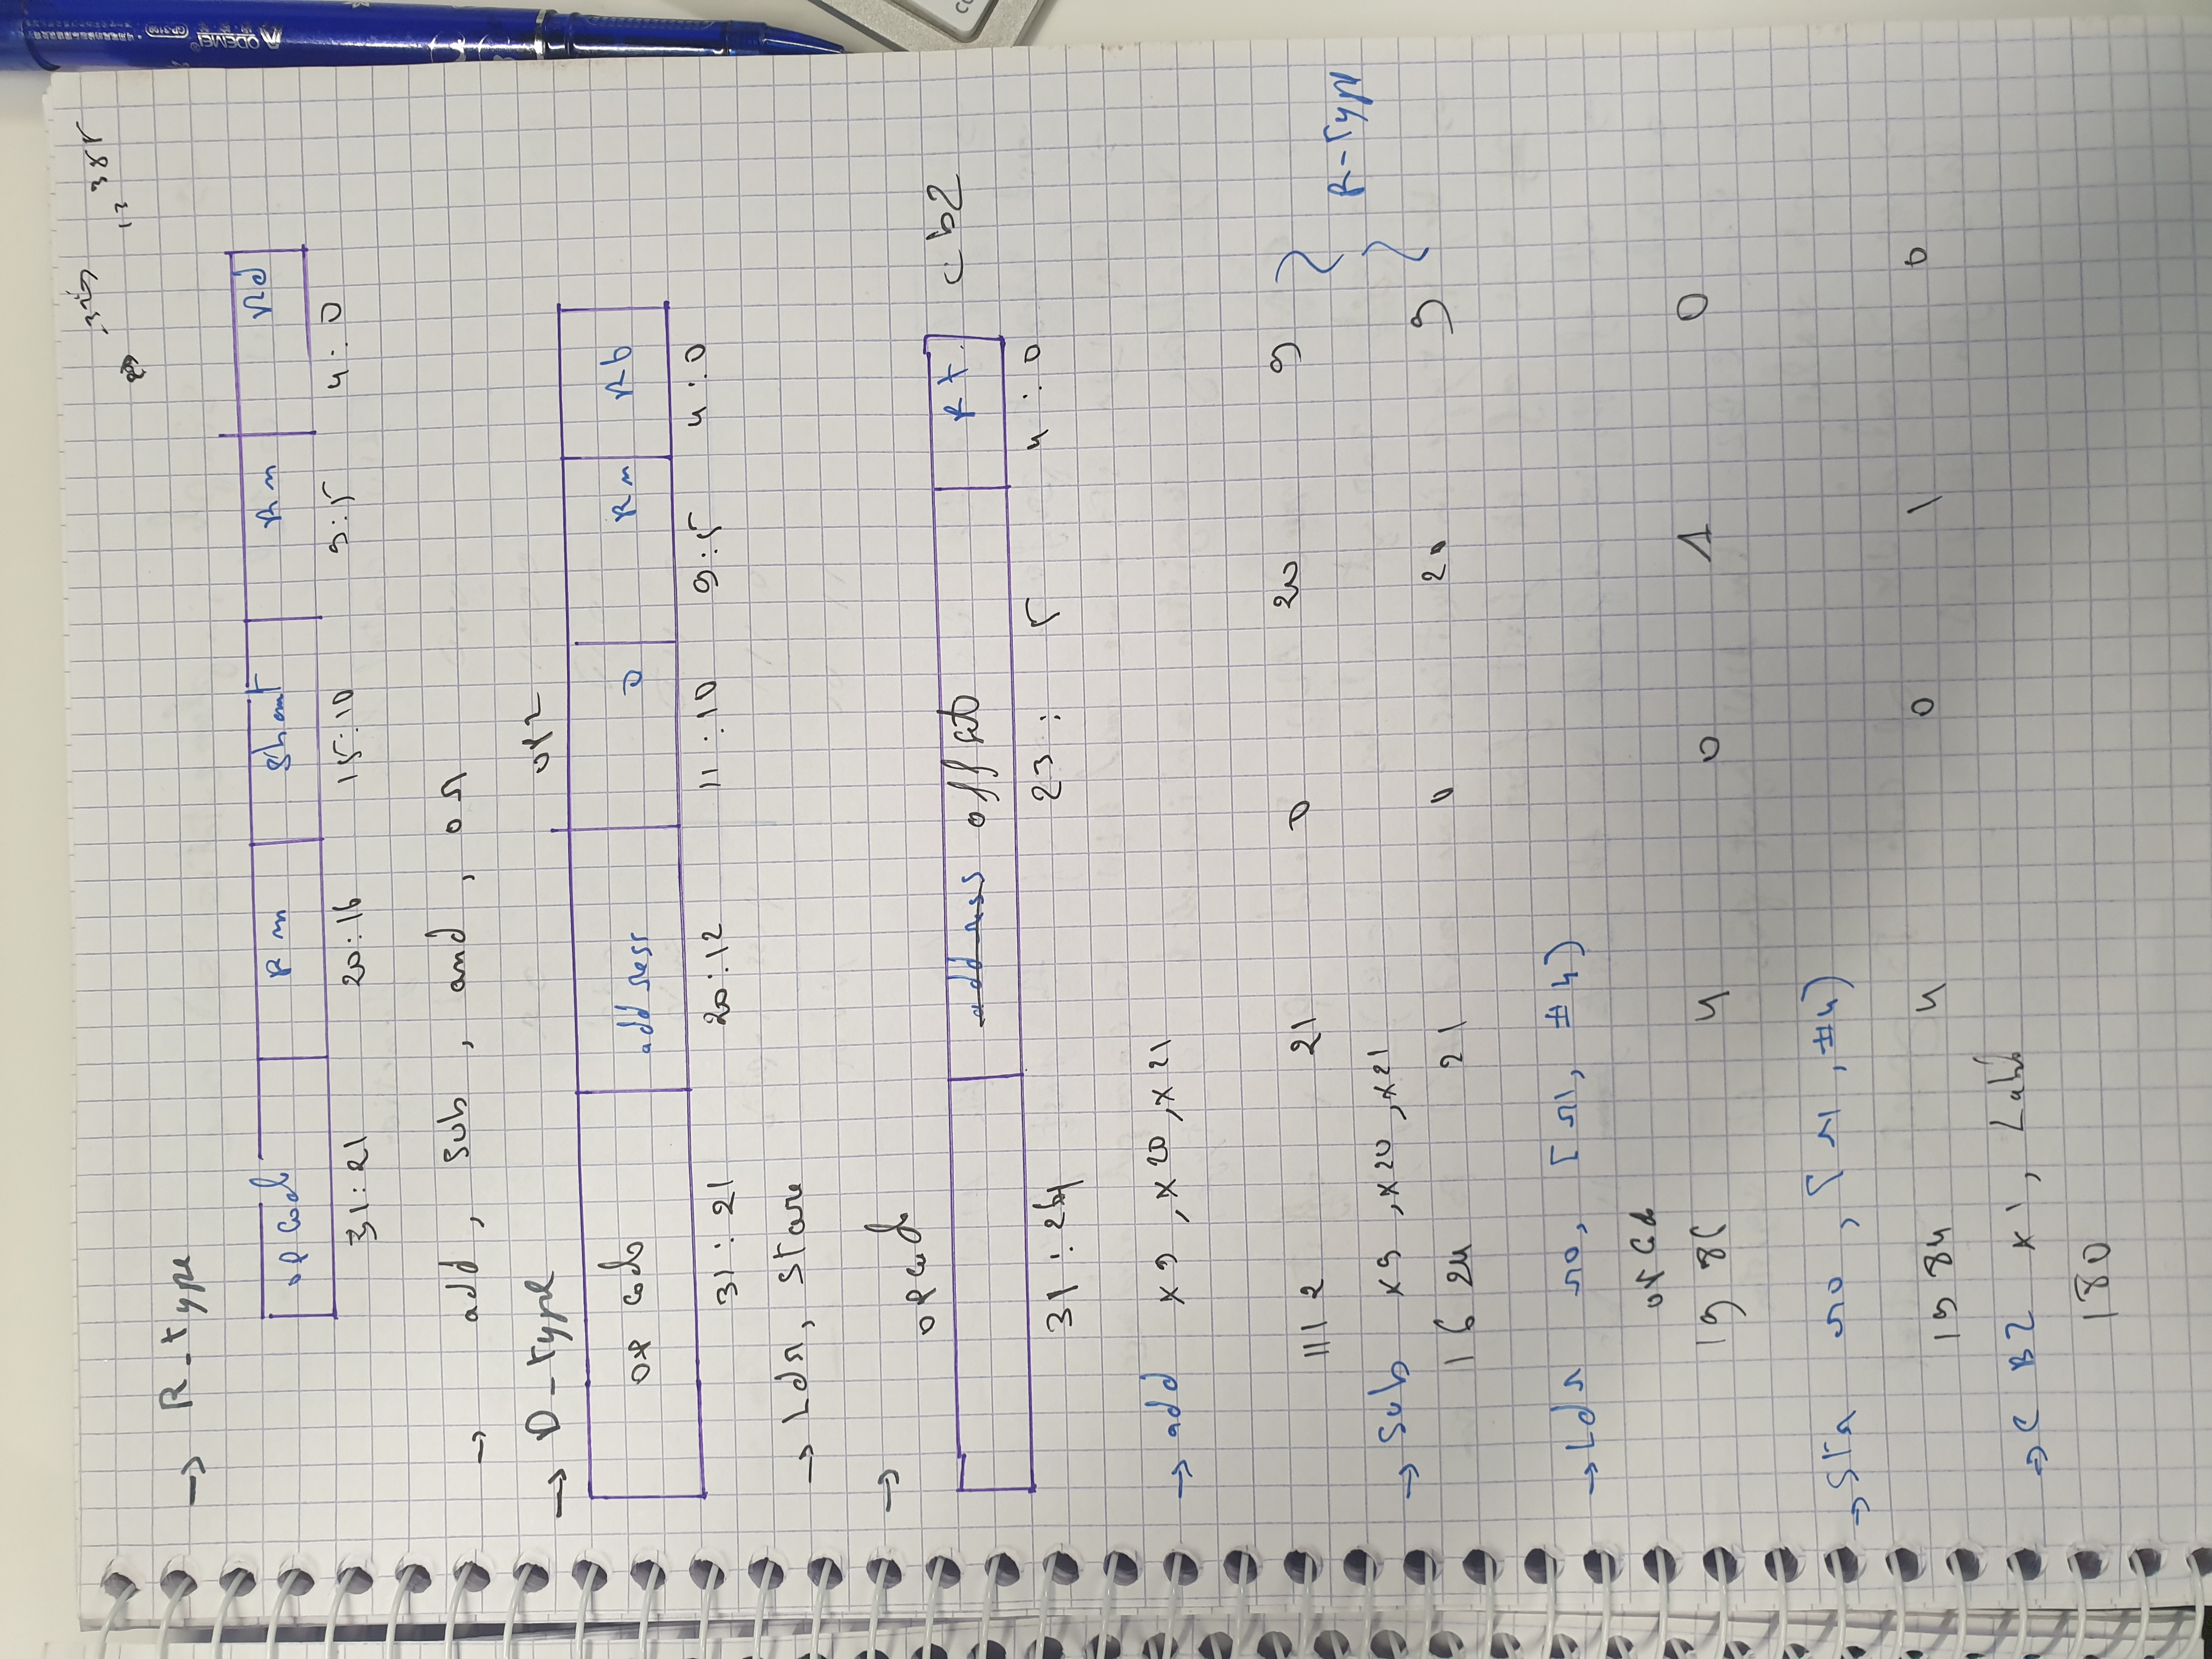 -325 13 388
→ R-type
op code Rm shamt Rn Rd
31:21 20:16 15:10 9:5 4:0
→ add, sub, and, or
→ D-type op2
op code address 0 Rn Rt
31:21 20:12 11:10 9:5 4:0
→ Ldr, store
→ opcode
address offset Rt cbz
31:24 23:5 4:0
→ add x9, x20, x21
1112 21 0 20 9
R-type
→ Sub x9, x20, x21
1624 21 0 20 9
→ Ldr r0, [r1, #4)
opcode
1986 4 0 1 0
→ Str r0, [r1, #4)
1984 4 0 1 0
→ CBZ x1, Label
180